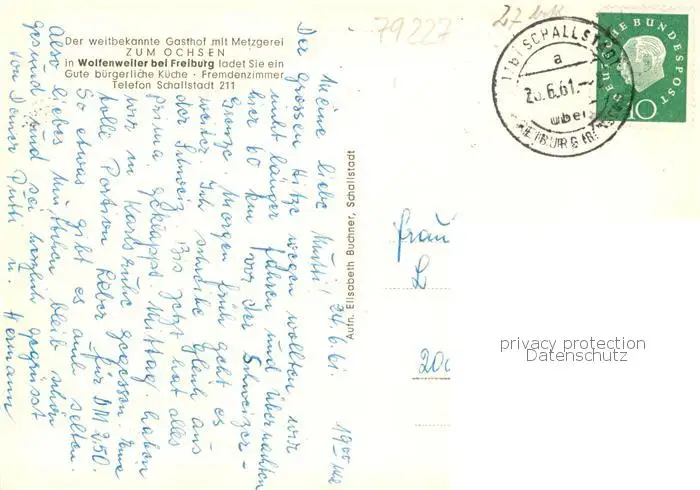 79227
27
Der weitbekannte Gasthof mit Metzgerei
ZUM OCHSEN
in Wolfenweiler bei Freiburg ladet Sie ein
Gute bürgerliche Küche - Fremdenzimmer
Telefon Schallstadt 211
Meine liebe Mutti! 24.6.61. 19⁰⁰ Uhr
Der grossen Hitze wegen wollten wir
nicht länger fahren und übernachten
hier 60 km vor der Schweizer-
Grenze. Morgen früh geht es
weiter. Ich schreibe gleich aus
der Schweiz. Bis jetzt hat alles
prima geklappt. Mittag haben
wir in Karlsruhe gegessen. Eine
tolle Portion Leber für DM 2,50.
So etwas gibt es auch selten.
Also liebes Muttchen bleib schön
gesund und sei herzlich gegrüsst
von Deiner Putti u. Hermann
Aufn. Elisabeth Buchner, Schallstadt
(17b) SCHALLSTADT
a
25.6.61.
über
FREIBURG (BREISGAU)
DEUTSCHE BUNDESPOST
10
Frau
L
20
privacy protection
Datenschutz